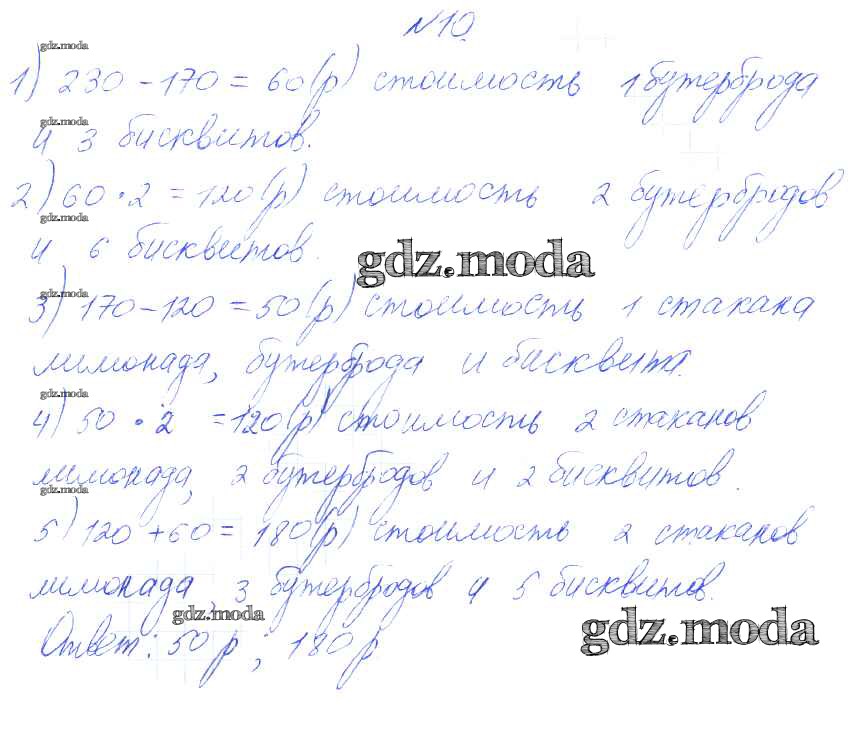 №10.
gdz.moda
1) 230 - 170 = 60 (р) стоимость 1 бутерброда
gdz.moda
и 3 бисквитов.
2) 60 · 2 = 120 (р) стоимость 2 бутербродов
gdz.moda
и 6 бисквитов.
gdz.moda
gdz.moda
3) 170 - 120 = 50 (р) стоимость 1 стакана
лимонада, бутерброда и бисквита.
gdz.moda
4) 50 · 2 = 120 (р) стоимость 2 стаканов
лимонада, 2 бутербродов и 2 бисквитов.
gdz.moda
5) 120 + 60 = 180 (р) стоимость 2 стаканов
лимонада, 3 бутербродов и 5 бисквитов.
gdz.moda
gdz.moda
Ответ: 50 р; 180 р